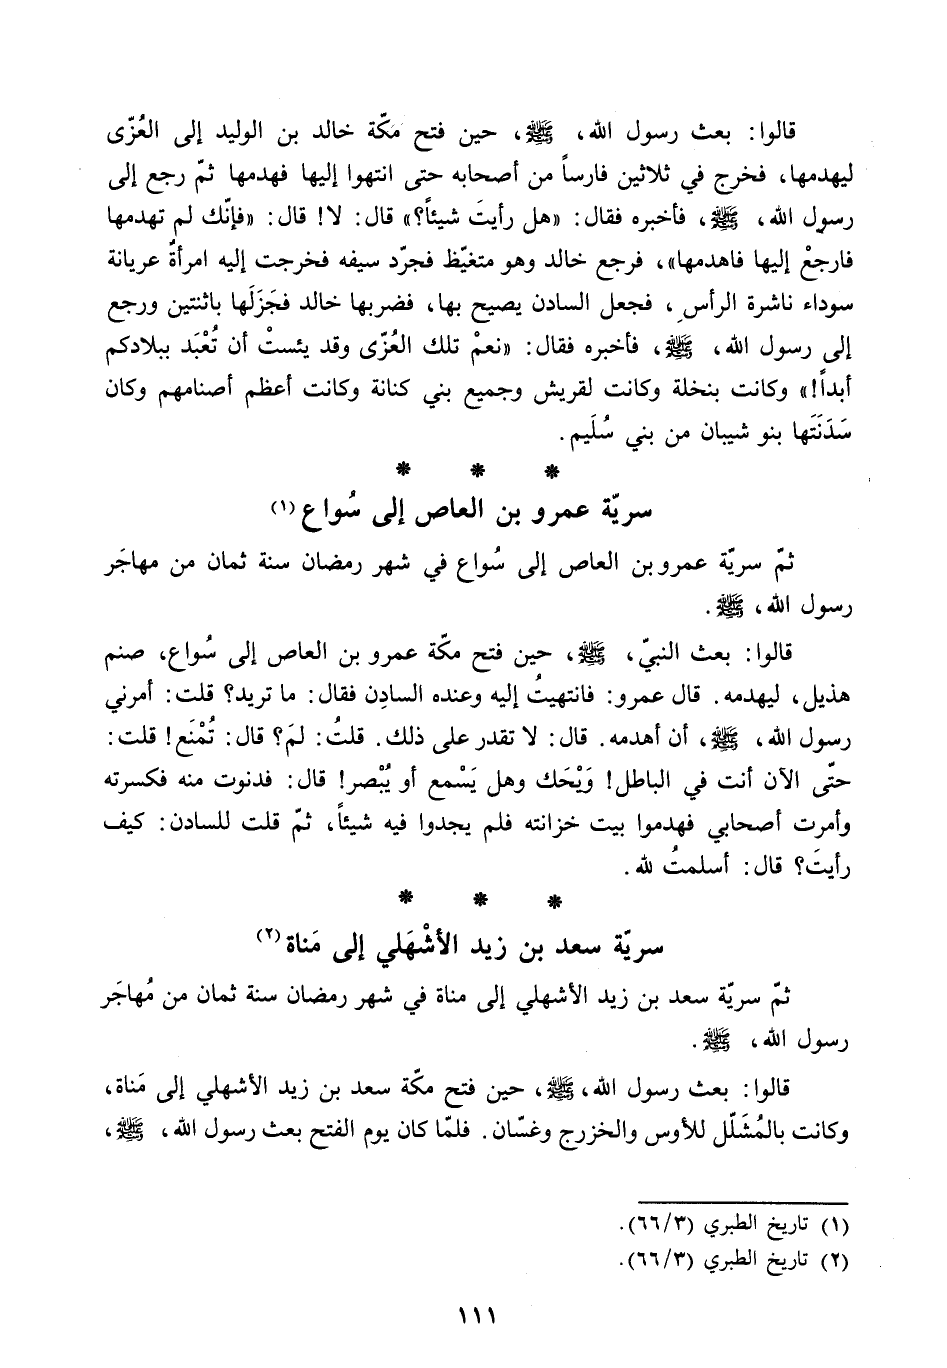 قالوا: بعث رسول الله، ﷺ، حين فتح مكّة خالد بن الوليد إلى العُزّى
ليهدمها، فخرج في ثلاثين فارساً من أصحابه حتى انتهوا إليها فهدمها ثمّ رجع إلى
رسول الله، ﷺ، فأخبره فقال: «هل رأيتَ شيئاً؟» قال: لا! قال: «فإنّك لم تهدمها
فارجعْ إليها فاهدمها»، فرجع خالد وهو متغيّظ فجرّد سيفه فخرجت إليه امرأةٌ عريانة
سوداء ناشرة الرأسِ، فجعل السادن يصيح بها، فضربها خالد فجَزَلَها باثنتين ورجع
إلى رسول الله، ﷺ، فأخبره فقال: «نعمْ تلك العُزّى وقد يئستْ أن تُعْبَد ببلادكم
أبداً!» وكانت بنخلة وكانت لقريش وجميع بني كنانة وكانت أعظم أصنامهم وكان
سَدَنَتَها بنو شيبان من بني سُلَيم.
* * *
سريّة عمرو بن العاص إلى سُواع (١)
ثمّ سريّة عمرو بن العاص إلى سُواع في شهر رمضان سنة ثمان من مهاجَر
رسول الله، ﷺ.
قالوا: بعث النبيّ، ﷺ، حين فتح مكّة عمرو بن العاص إلى سُواع، صنم
هذيل، ليهدمه. قال عمرو: فانتهيتُ إليه وعنده السادِن فقال: ما تريد؟ قلت: أمرني
رسول الله، ﷺ، أن أهدمه. قال: لا تقدر على ذلك. قلتُ: لمَ؟ قال: تُمْنَع! قلت:
حتّى الآن أنت في الباطل! وَيْحَك وهل يَسْمع أو يُبْصر! قال: فدنوت منه فكسرته
وأمرت أصحابي فهدموا بيت خزانته فلم يجدوا فيه شيئاً، ثمّ قلت للسادن: كيف
رأيتَ؟ قال: أسلمتُ لله.
* * *
سريّة سعد بن زيد الأشْهَلي إلى مَناة (٢)
ثمّ سريّة سعد بن زيد الأشهلي إلى مناة في شهر رمضان سنة ثمان من مُهاجَر
رسول الله، ﷺ.
قالوا: بعث رسول الله، ﷺ، حين فتح مكّة سعد بن زيد الأشهلي إلى مَناة،
وكانت بالمُشَلّل للأوس والخزرج وغسّان. فلمّا كان يوم الفتح بعث رسول الله، ﷺ،
(١) تاريخ الطبري (٦٦/٣).
(٢) تاريخ الطبري (٦٦/٣).
١١١